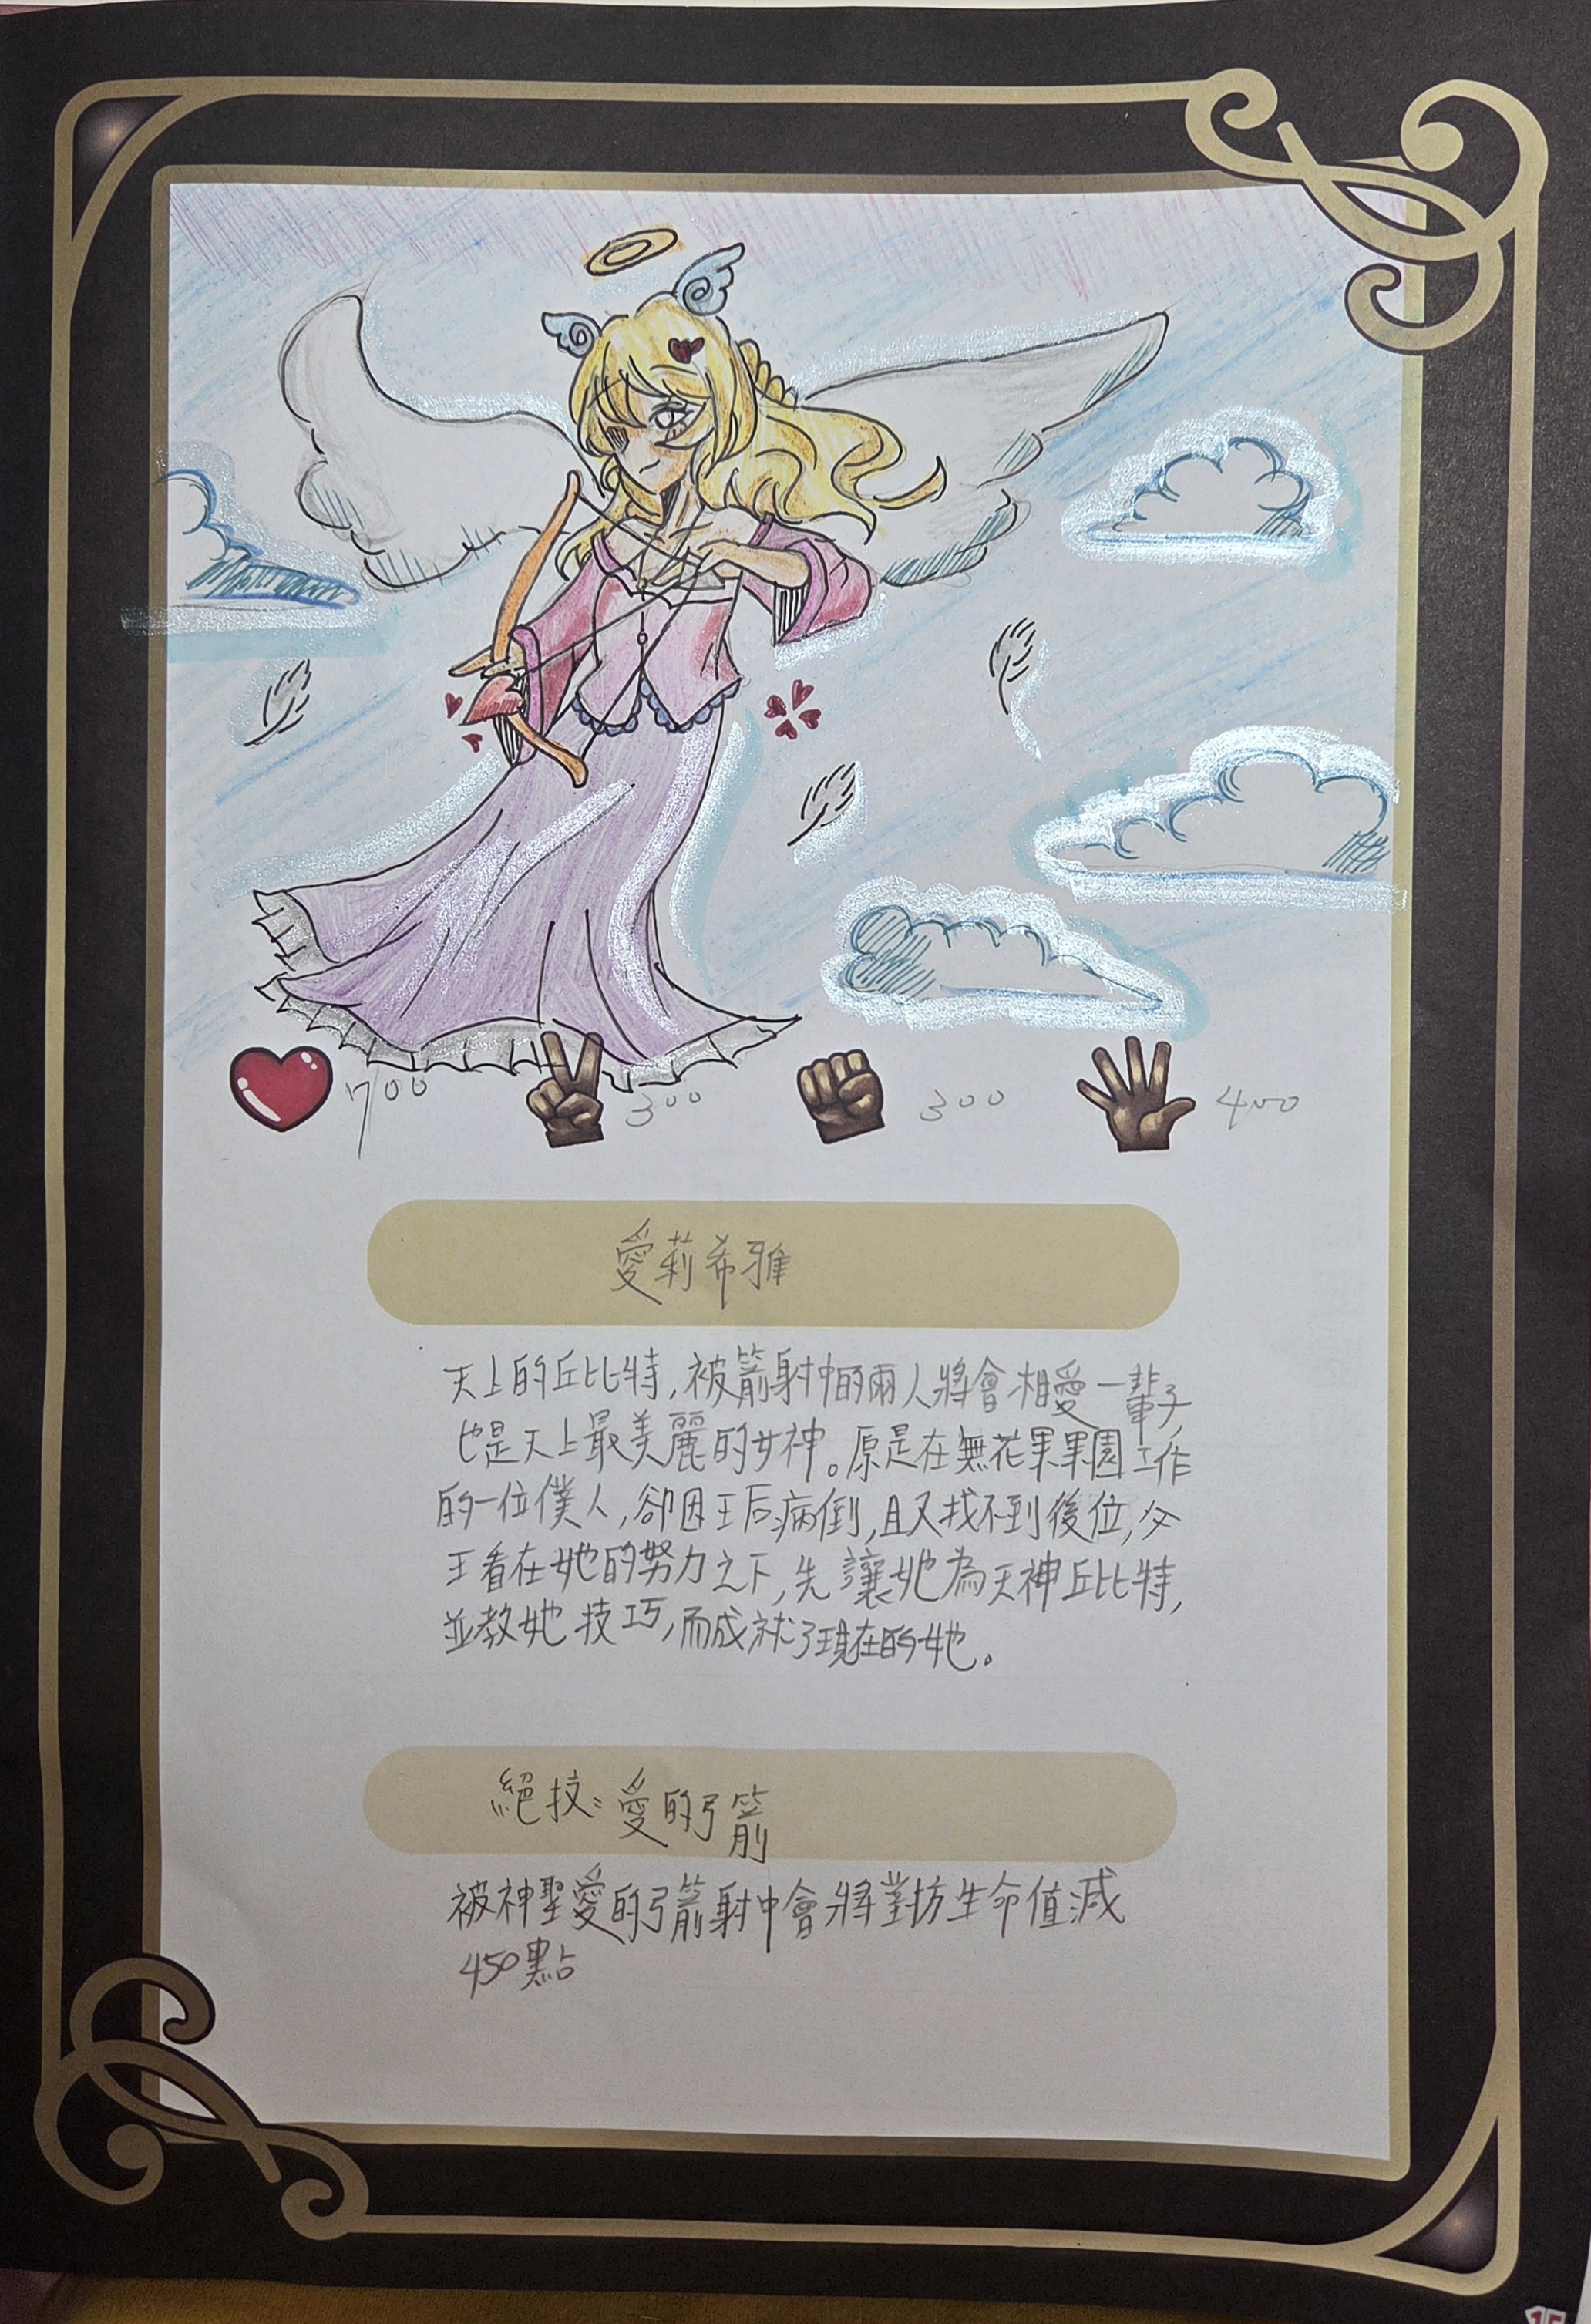 700 300 300 400
愛莉希雅
天上的丘比特,被箭射中的兩人將會相愛一輩子,
也是天上最美麗的女神。原是在無花果果園工作
的一位僕人,卻因王后病倒,且又找不到後位,父
王看在她的努力之下,先讓她為天神丘比特,
並教她技巧,而成就了現在的她。
絕技:愛的弓箭
被神聖愛的弓箭射中會將對坊生命值減
450點
15